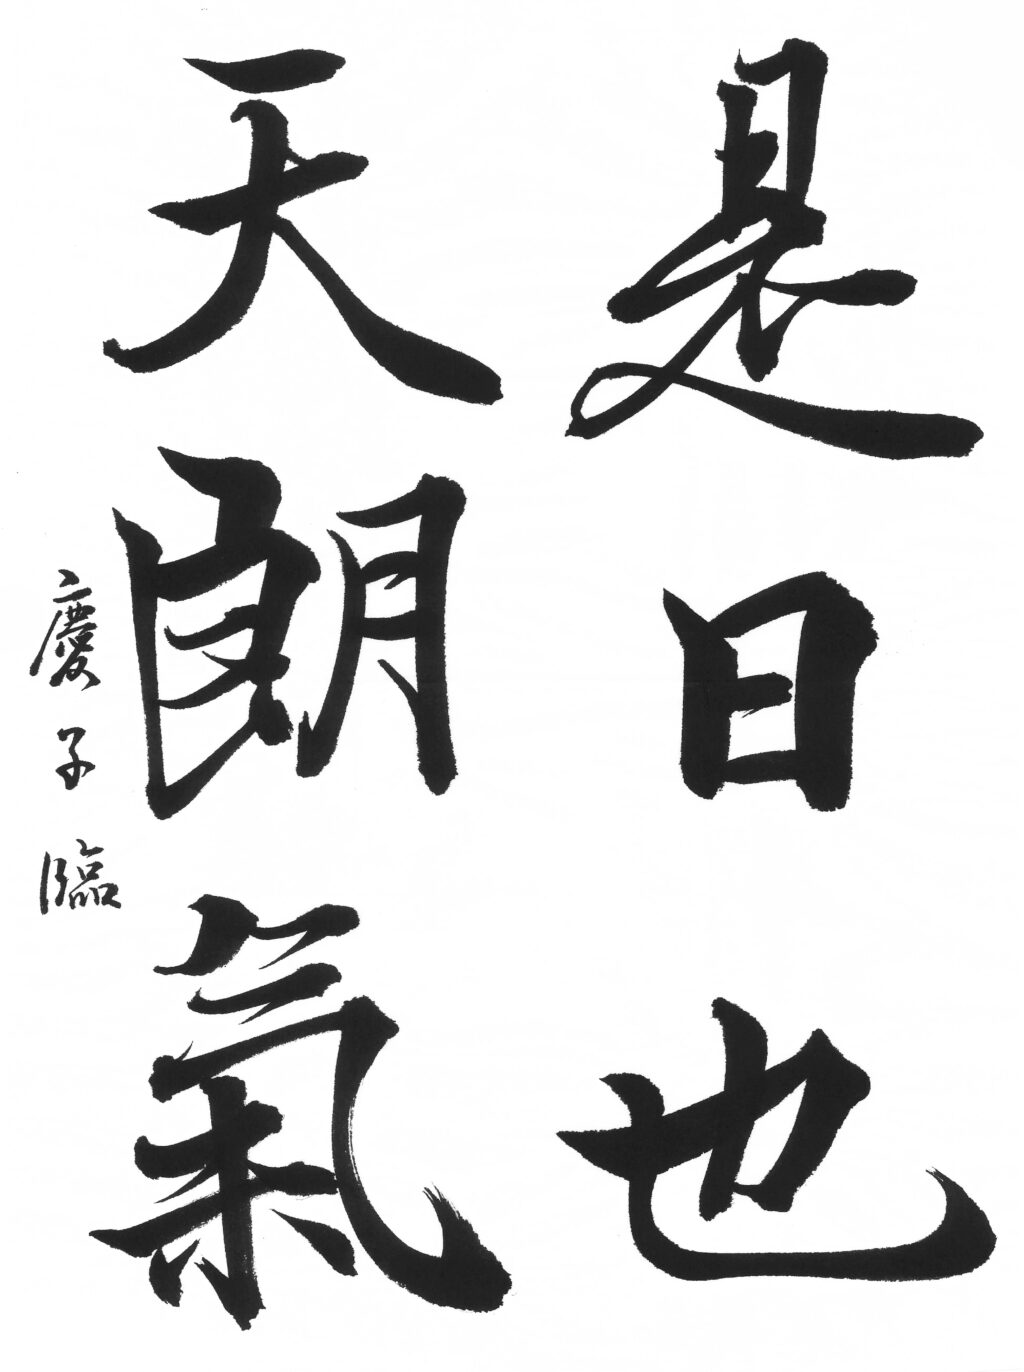 是日也
天朗氣
慶子臨